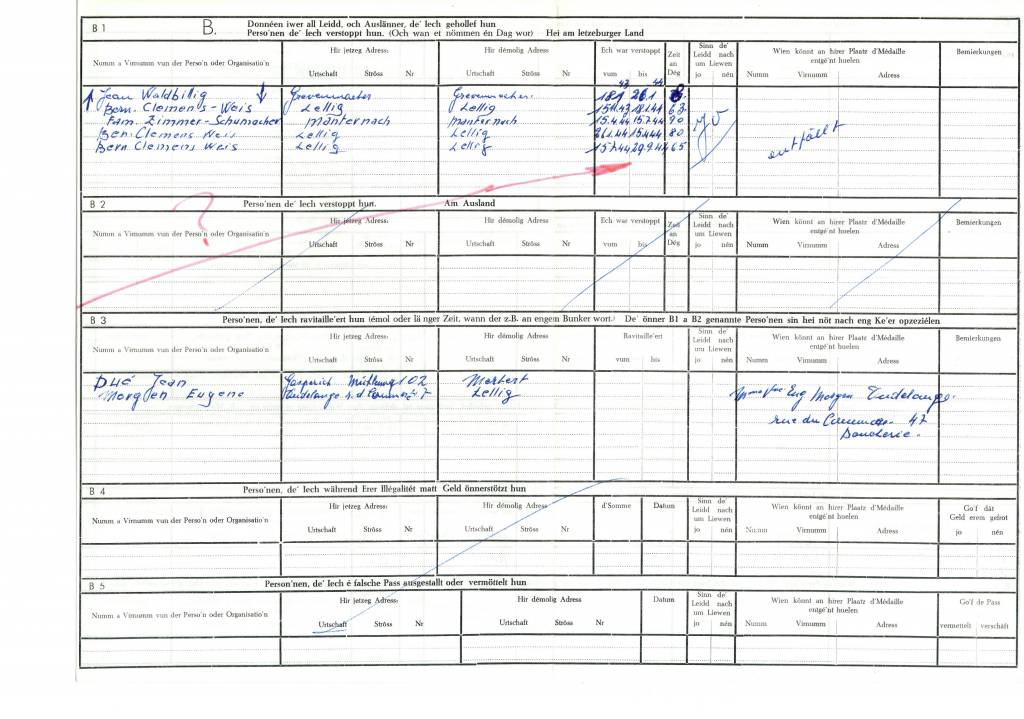 B 1 B. Donnéen iwer all Leidd, och Auslänner, de' Iech gehollef hun
Perso'nen de' Iech verstoppt hun. (Och wan et nömmen én Dag wor) Hei am letzeburger Land
Numm a Virnumm vun der Perso'n oder Organisatio'n
Hir jetzeg Adress:
Urtschaft Ströss Nr
Hir démolig Adress:
Urtschaft Ströss Nr
Ech war verstoppt
vum bis
43 44
Zeit an Dég
Sinn de' Leidd nach um Liewen
jo nén
Wien könnt an hirer Plaatz d'Médaille entgé'nt huelen
Numm Virnumm Adress
Bemierkungen
Jean Waldbillig Grevenmacher Grevenmacher 18.1 26.1 8
Bern. Clemens-Weis Lellig Lellig 63
Fam. Zimmer-Schumacher Manternach Manternach 15.4.44 15.7.44 90
Ben. Clemens Weis Lellig Lellig 26.1.44 15.4.44 80
Bern Clemens Weis Lellig Lellig 15.7.44 29.9.44 65
jo
entfällt
B 2 Perso'nen de' Iech verstoppt hun. Am Ausland
?
Numm a Virnumm vun der Perso'n oder Organisatio'n
Hir jetzeg Adress:
Urtschaft Ströss Nr
Hir démolig Adress:
Urtschaft Ströss Nr
Ech war verstoppt
vum bis
Zeit an Dég
Sinn de' Leidd nach um Liewen
jo nén
Wien könnt an hirer Plaatz d'Médaille entgé'nt huelen
Numm Virnumm Adress
Bemierkungen
B 3 Perso'nen, de' Iech ravitaille'ert hun (émol oder länger Zeit, wann der z.B. an engem Bunker wort.) De' önner B1 a B2 genannte Perso'nen sin hei nöt nach eng Ke'er opzezielen
Numm a Virnumm vun der Perso'n oder Organisatio'n
Hir jetzeg Adress:
Urtschaft Ströss Nr
Hir démolig Adress:
Urtschaft Ströss Nr
Ravitaille'ert
vum bis
Sinn de' Leidd nach um Liewen
jo nén
Wien könnt an hirer Plaatz d'Médaille entgé'nt huelen
Numm Virnumm Adress
Bemierkungen
Jean Gasperich 102 Mertert
Morgen Eugene Dudelange Lellig
Eug Morgen Dudelange
rue du 47
Boucherie.
B 4 Perso'nen, de' Iech während Erer Illégalitét matt Geld önnerstötzt hun
Numm a Virnumm vun der Perso'n oder Organisatio'n
Hir jetzeg Adress:
Urtschaft Ströss Nr
Hir démolig Adress
Urtschaft Ströss Nr
d'Somme
Datum
Sinn de' Leidd nach um Liewen
jo nén
Wien könnt an hirer Plaatz d'Médaille entgé'nt huelen
Numm Virnumm Adress
Go'f dât Geld erem gefrot
jo nén
B 5 Person'nen, de' Iech é falsche Pass ausgestallt oder vermöttelt hun
Numm a Virnumm vun der Perso'n oder Organisatio'n
Hir jetzeg Adress:
Urtschaft Ströss Nr
Hir démolig Adress
Urtschaft Ströss Nr
Datum
Sinn de' Leidd nach um Liewen
jo nén
Wien könnt an hirer Plaatz d'Médaille entgé'nt huelen
Numm Virnumm Adress
Go'f de Pass
vermettelt verschäft